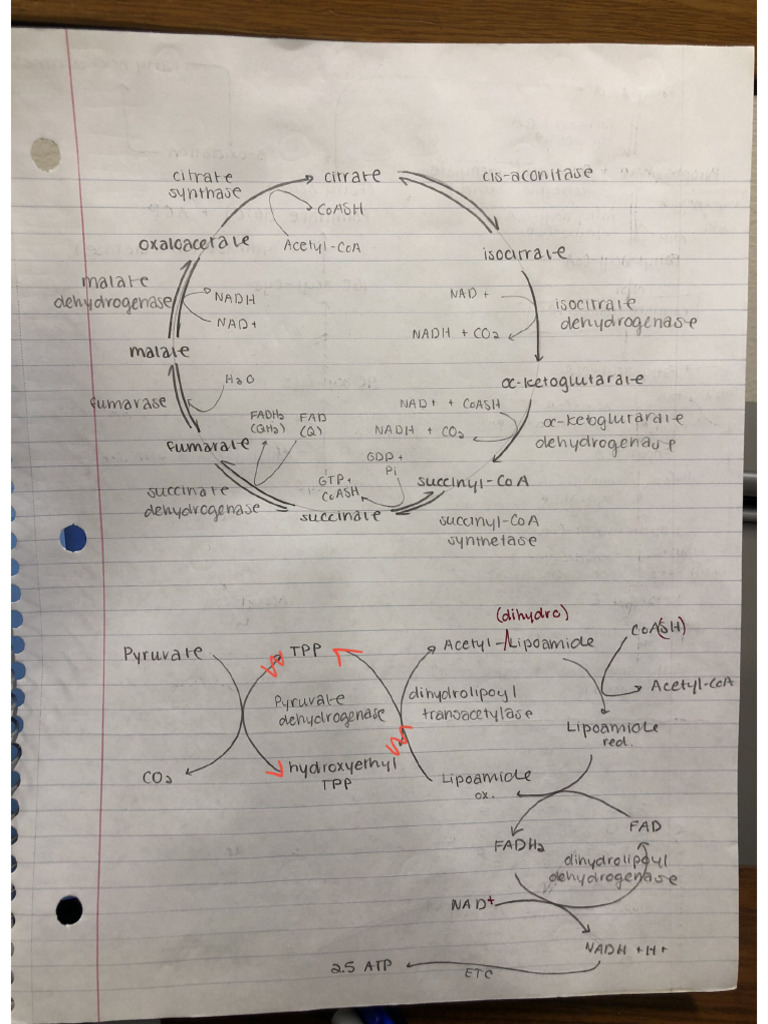 citrate
synthase
citrate
cis-aconitase
CoASH
Acetyl-CoA
oxaloacetate
isocitrate
malate
dehydrogenase
NADH
NAD+
NAD+
NADH + CO2
isocitrate
dehydrogenase
malate
α-ketoglutarate
fumarase
H2O
NAD+ + CoASH
NADH + CO2
α-ketoglutarate
dehydrogenase
FADH2
(QH2)
FAD
(Q)
fumarate
GDP +
Pi
GTP +
CoASH
succinyl-CoA
succinate
dehydrogenase
succinate
succinyl-CoA
synthetase
(dihydro)
Pyruvate
TPP
Acetyl-Lipoamide
CoA(SH)
Acetyl-CoA
Pyruvate
dehydrogenase
dihydrolipoyl
transacetylase
Lipoamide
red.
CO2
hydroxyethyl
TPP
Lipoamide
ox.
FADH2
FAD
dihydrolipoyl
dehydrogenase
NAD+
NADH + H+
2.5 ATP
ETC